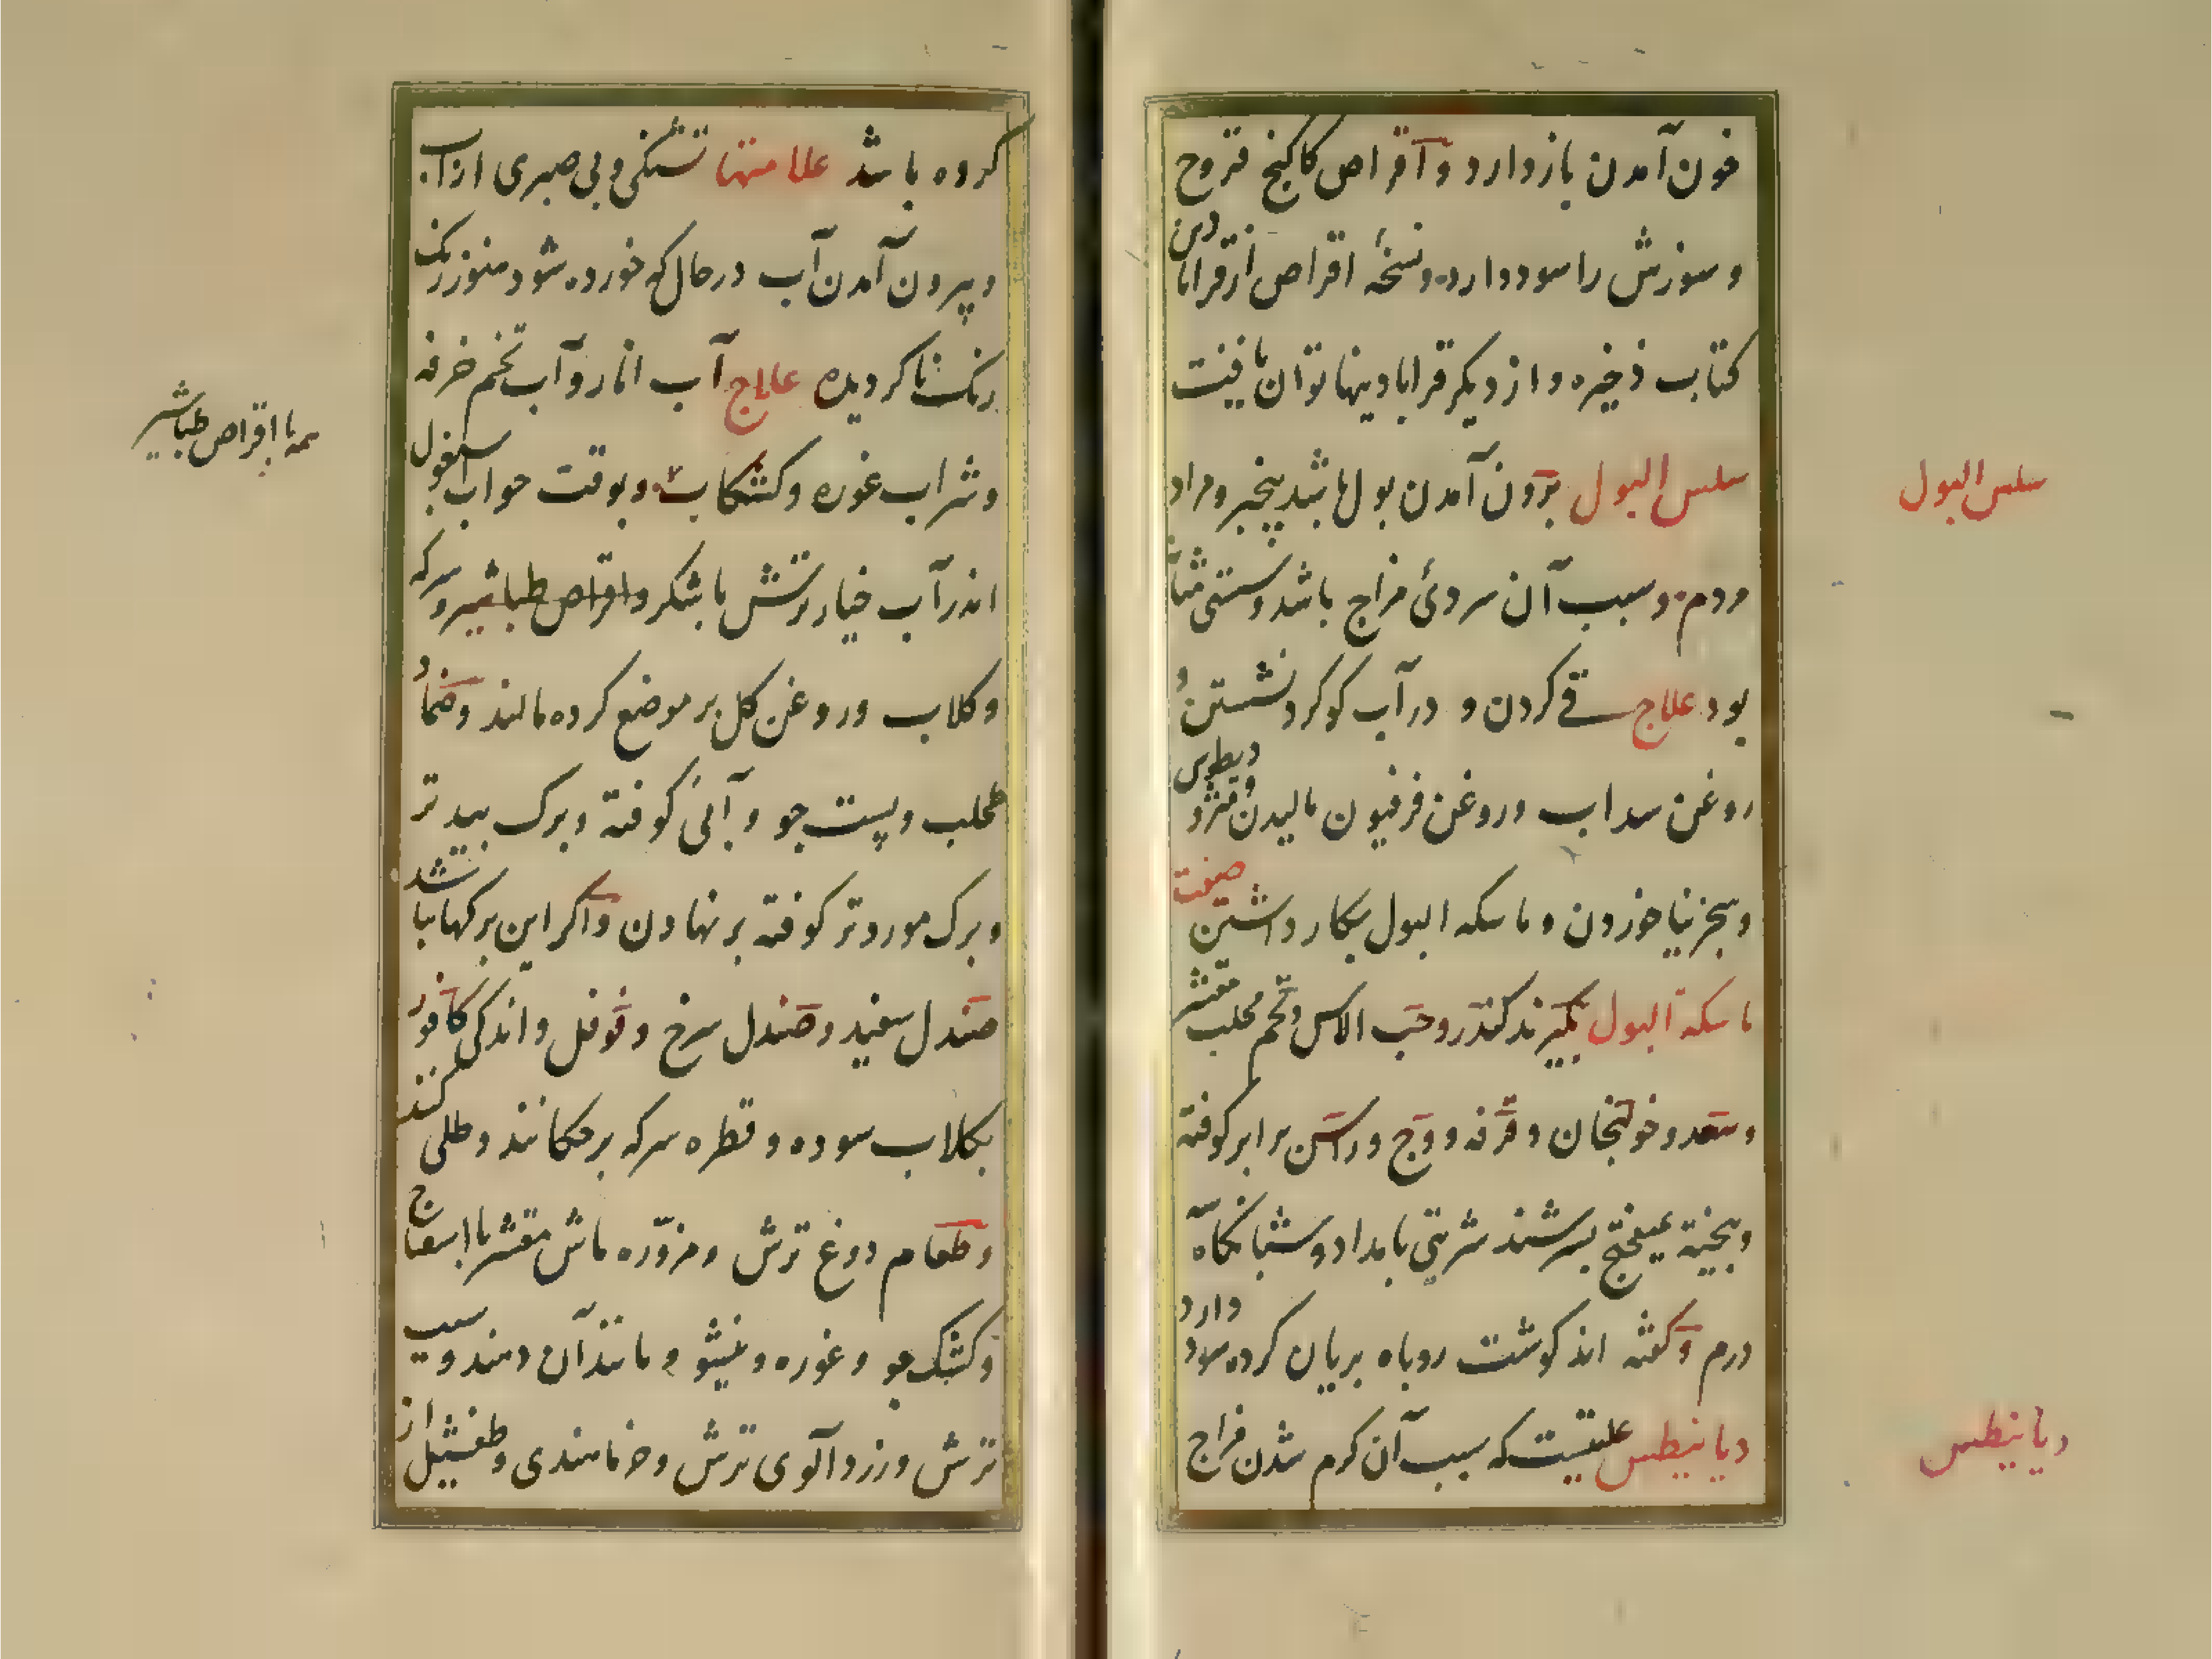 خون آمدن بازدارد و اقراص کاکنج قروح
و سوزش را سود دارد و نسخهٔ اقراص از قرابادین
کتاب ذخیره و از دیکر قرابادینها توان یافت
سلس البول
سلس البول برون آمدن بول باشد بیخبر و مراد
مردم و سبب آن سردئ مزاج باشد و سستی مثانه
بود علاج قے کردن و در آب کوکرد نشستن و
روغن سداب و روغن فرفیون مالیدن و مثرودیطوس
و سجزنیا خوردن و ماسکه البول بکار داشتن صفت
ماسکة البول بکیرند کندر و حب الاس و تخم محلب مقشر
و سعد و خولنجان و قرفه و وج و راسن برابر کوفته
و بیخته بمیفختج بسرشند شربتی بامداد و شبانکاه
درم و کفته اند کوشت روباه بریان کرده سود دارد
دیانیطس
دیانیطس علتیست که سبب آن کرم شدن مزاج
کرده باشد علامتها تشنکی و بی صبری از آب
و بیرون آمدن آب در حال که خورده شود هنوز رنک
رنک ناکردیده علاج آب انار و آب تخم خرفه
و شراب غوره و کشکاب و بوقت خواب اسبغول
همه با اقراص طباشیر
اندر آب خیار ترش با شکر و اقراص طباشیر و سرکه
و کلاب و روغن کل بر موضع کرده مالند و ضماد
طحلب و پست جو و آبی کوفته و برک بید تر
و برک مورد تر کوفته بر نهادن و اکر این برکها نباشد
صندل سفید و صندل سرخ و فوفل و اندکی کافور
بکلاب سوده و قطره سرکه برچکانند و طلی کنند
و طعام دوغ ترش و مزوّره ماش مقشر با اسفاناج
و کشک جو و غوره و نیشو و مانند آن دهند و سیب
ترش و زردآلوی ترش و خرما هندی و طفشیل از